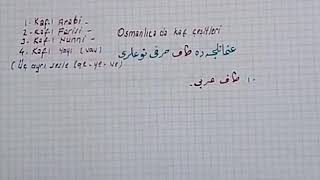 1- Kaf-ı Arabi -
2- Kaf-ı Farisi -
3- Kaf-ı Nunni -
4- Kaf-ı Yayi (vav)
(Üç ayrı sesle (ge-ye-ve)
Osmanlıca da kaf çeşitleri
عثمانليجه ده كاف حرفى نوعلرى
١. كاف عربى .